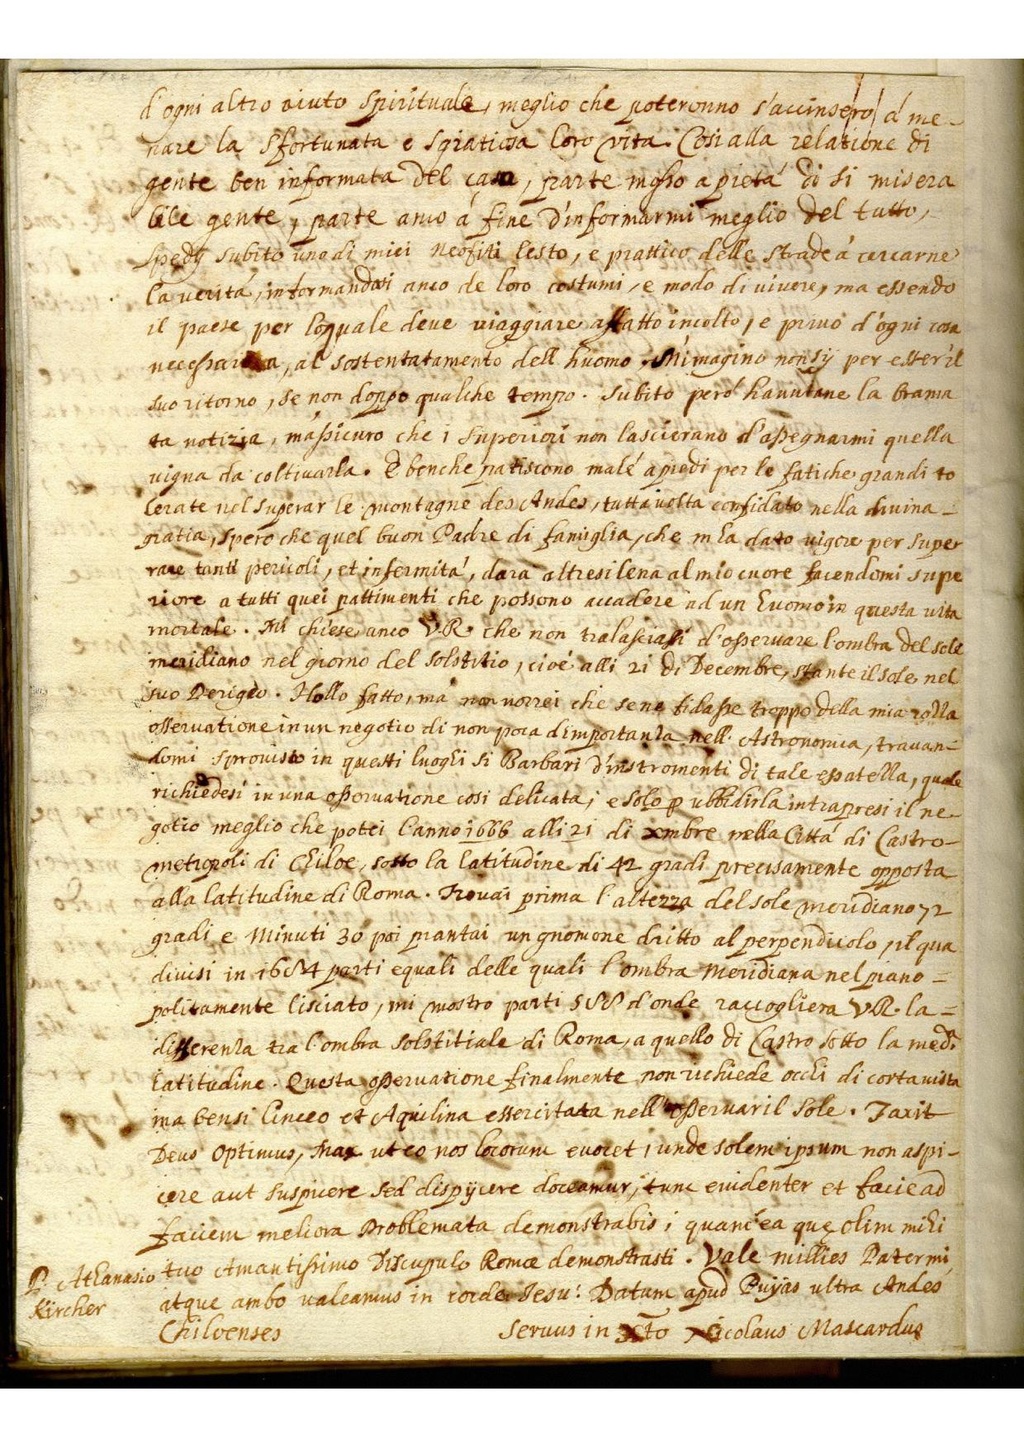 d'ogni altro aiuto spirituale, meglio che poteronno s'accinsero á me-
nare la sfortunata e sgratiosa loro vita. Cosi alla relatione di
gente ben informata del caso, parte mosso a pietá di si misera
bile gente, parte anco á fine d'informarmi meglio del tutto,
spedÿ subito uno di miei neofiti lesto, e prattico delle strade á cercarne
la veritá, informandosi anco de loro costumi, e modo di vivere, ma essendo
il paese per loquale deve viaggiare affatto incolto, e privo d'ogni cosa
necessaria, al sostentatamento dell huomo. M'imagino non sÿ per esser il
suo ritorno, se non doppo qualche tempo. Subito peró havutane la brama
ta notizia, m'assicuro che i superiori non lascierano d'assegnarmi quella
vigna da coltivarla. E benche patiscono male á piedi per le fatiche grandi to
lerate nel superar le montagne des Andes, tutta volta confidato nella divina-
gratia, spero che quel buon Padre di famiglia, che m ha dato vigore per super
rare tanti pericoli, et infermitá, dara altresi lena al mio cuore facendomi supe
riore a tutti quei pattimenti che possono accadere ad un huomo in questa vita
mortale. Mi chiese anco V.R. che non tralasciassi d'osservare l'ombra del sole
meridiano nel giorno del solstitio, cioé alli 21 di Decembre, stante il sole nel
suo Perigeo. Hollo fatto, má non vorrei che se ne fidasse troppo della mia rozza
osservatione in un negotio di non poca d'importanza nell' Astronomia, trovan-
domi sprovisto in questi luoghi si Barbari d'instromenti di tale esatella, quale
richiedesi in una osservatione cosi delicata; e solo p ubbidirla intrapresi il ne-
gotio meglio che potei l'anno 1666 alli 21 di xmbre nella Cittá di Castro-
metropoli di Chiloe, sotto la latitudine di 42 gradi precisamente opposta
alla latitudine di Roma. Trovai prima l'altezza del sole meridiano 72
gradi e Minuti 30 poi piantai un gnomone dritto al perpendicolo, il qua
divisi in 1684 parti equali delle quali l'ombra Meridiana nel piano=
politamente lisciato, mi mostro parti 588 d'onde raccogliera V.R. la=
differenza tra l'ombra solstitiale di Roma, a quello di Castro sotto la meda
latitudine. Questa osservatione finalmente non richiede occhi di corta vista
ma bensi linceo et Aquilina essercitata nell'osservar il sole. Faxit
Deus Optimus, Max ut eo nos locorum evocet, unde solem ipsum non aspi-
cere aut suspicere sed dispÿcere doceamur, tunc evidenter et facie ad
faciem meliora Problemata demonstrabis; quam ea quę olim mihi
tuo Amantissimo Discupulo Romæ demonstrasti. Vale millies Pater mi
atque ambo valeamus in corde Jesu: Datum apud Puÿas ultra Andes
Chiloenses Servus in Xto Nicolaus Mascardus
P. Athanasio
Kircher